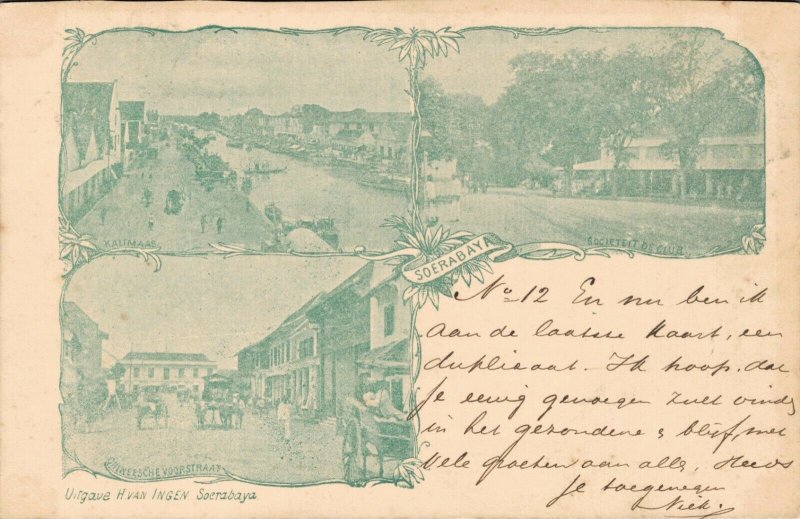 KALIMAAS
SOCIETEIT DE CLUB
SOERABAYA
CHINEESCHE VOORSTRAAT
Uitgave H. VAN INGEN Soerabaya
No 12 En nu ben ik
aan de laatste kaart, een
duplicaat. Ik hoop, dat
je eenig genoegen zult vinden
in het gezondene & blijf, met
vele groeten aan alle, steeds
je toegenegen
Niek.